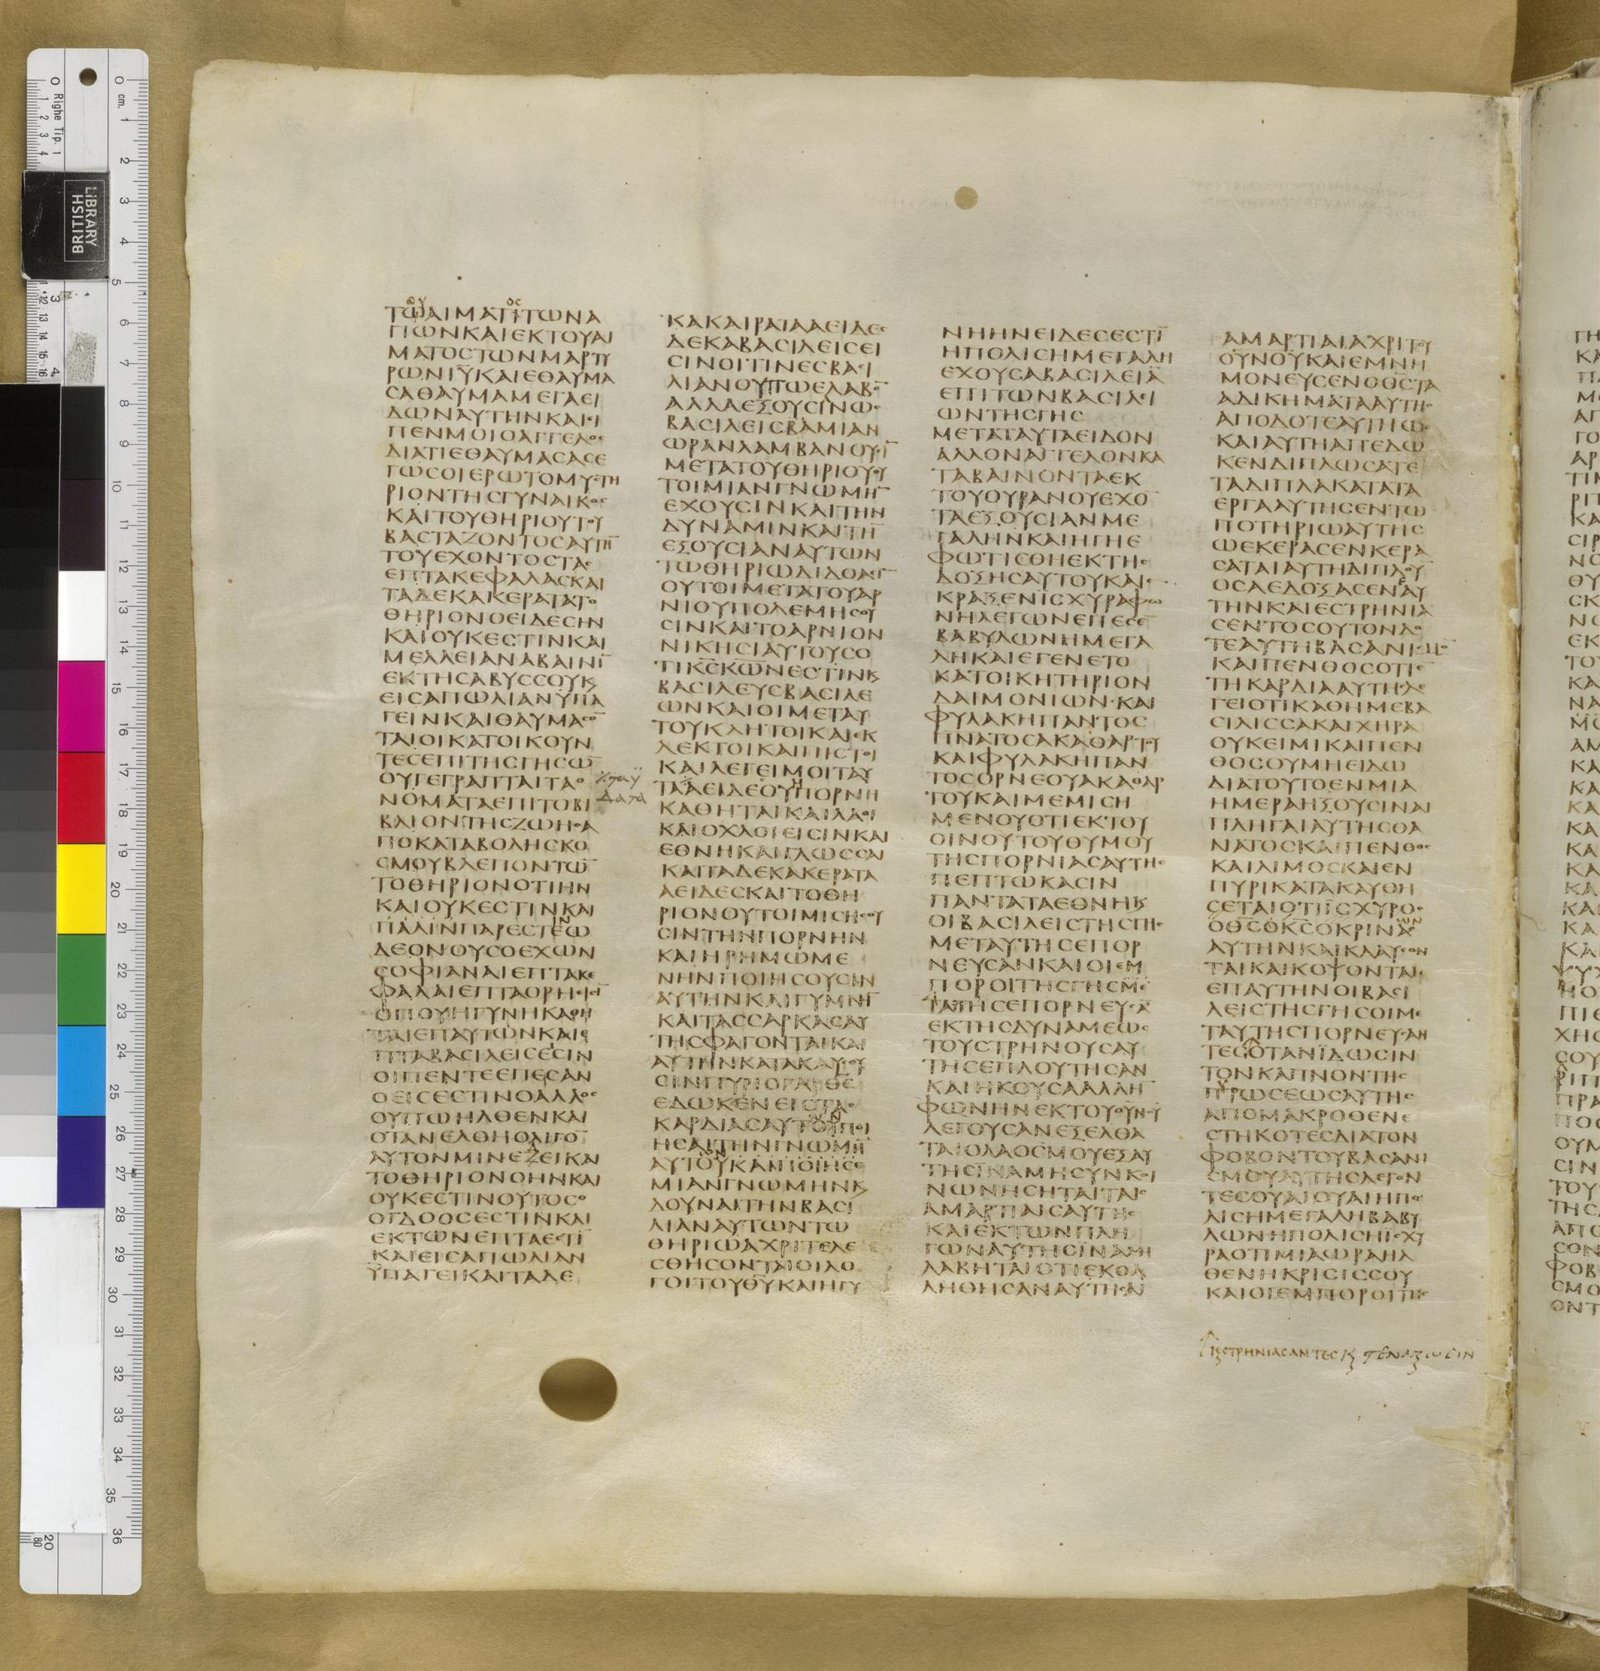 ΤΩΑΙΜΑΤΙΤΩΝΑ
ΓΙΩΝΚΑΙΕΚΤΟΥΑΙ
ΜΑΤΟϹΤΩΝΜΑΡΤΥ
ΡΩΝΙΥΚΑΙΕΘΑΥΜΑ
ϹΑΘΑΥΜΑΜΕΓΑΕΙ
ΔΩΝΑΥΤΗΝΚΑΙΕΙ
ΠΕΝΜΟΙΟΑΓΓΕΛΟϹ
ΔΙΑΤΙΕΘΑΥΜΑϹΑϹΕ
ΓΩϹΟΙΕΡΩΤΟΜΥϹΤΗ
ΡΙΟΝΤΗϹΓΥΝΑΙΚΟϹ
ΚΑΙΤΟΥΘΗΡΙΟΥΤΟΥ
ΒΑϹΤΑΖΟΝΤΟϹΑΥΤΗ̅
ΤΟΥΕΧΟΝΤΟϹΤΑϹ
ΕΠΤΑΚΕΦΑΛΑϹΚΑΙ
ΤΑΔΕΚΑΚΕΡΑΤΑΤΟ
ΘΗΡΙΟΝΟΕΙΔΕϹΗΝ
ΚΑΙΟΥΚΕϹΤΙΝΚΑΙ
ΜΕΛΛΕΙΑΝΑΒΑΙΝΙ̅
ΕΚΤΗϹΑΒΥϹϹΟΥΚ
ΕΙϹΑΠΩΛΙΑΝΥΠΑ
ΓΕΙΝΚΑΙΘΑΥΜΑϹΟ̅
ΤΑΙΟΙΚΑΤΟΙΚΟΥΝ
ΤΕϹΕΠΙΤΗϹΓΗϹΩ̅
ΟΥΓΕΓΡΑΠΤΑΙΤΑΟ
ΝΟΜΑΤΑΕΠΙΤΟΒΙ
ΒΛΙΟΝΤΗϹΖΩΗϹΑ
ΠΟΚΑΤΑΒΟΛΗϹΚΟ
ϹΜΟΥΒΛΕΠΟΝΤΩ̅
ΤΟΘΗΡΙΟΝΟΤΙΗΝ
ΚΑΙΟΥΚΕϹΤΙΝΚΑΙ
ΠΑΛΙΝΠΑΡΕϹΤΕΩ
ΔΕΟΝΟΥϹΟΕΧΩΝ
ϹΟΦΙΑΝΑΙΕΠΤΑΚΕ
ΦΑΛΑΙΕΠΤΑΟΡΗΕΙϹΙ̅
ΟΠΟΥΗΓΥΝΗΚΑΘΗ
ΤΑΙΕΠΑΥΤΩΝΚΑΙΕ
ΠΤΑΒΑϹΙΛΕΙϹΕϹΙΝ
ΟΙΠΕΝΤΕΕΠΕϹΑΝ
ΟΕΙϹΕϹΤΙΝΟΑΛΛΟϹ
ΟΥΠΩΗΛΘΕΝΚΑΙ
ΟΤΑΝΕΛΘΗΟΛΙΓΟ̅
ΑΥΤΟΝΜΙΝΕΖΕΙΚΑΙ
ΤΟΘΗΡΙΟΝΟΗΝΚΑΙ
ΟΥΚΕϹΤΙΝΟΥΤΟϹΟ
ΟΓΔΟΟϹΕϹΤΙΝΚΑΙ
ΕΚΤΩΝΕΠΤΑΕϹΤΙ̅
ΚΑΙΕΙϹΑΠΩΛΙΑΝ
ΥΠΑΓΕΙΚΑΙΤΑΔΕ
ΚΑΚΑΙΡΑΤΑΑΕΙΔΕϹ
ΔΕΚΑΒΑϹΙΛΕΙϹΕΙ
ϹΙΝΟΙΤΙΝΕϹΒΑϹΙ
ΛΙΑΝΟΥΠΩΕΛΑΒΟ̅
ΑΛΛΑΕΞΟΥϹΙΝΩϹ
ΒΑϹΙΛΕΙϹΒΑΜΙΑΝ
ΩΡΑΝΛΑΜΒΑΝΟΥϹΙ̅
ΜΕΤΑΤΟΥΘΗΡΙΟΥΟΥ
ΤΟΙΜΙΑΝΓΝΩΜΗ̅
ΕΧΟΥϹΙΝΚΑΙΤΗΝ
ΔΥΝΑΜΙΝΚΑΙΤΗ̅
ΕΞΟΥϹΙΑΝΑΥΤΩΝ
ΤΩΘΗΡΙΩΔΙΔΟΑϹΙ̅
ΟΥΤΟΙΜΕΤΑΤΟΥΑΡ
ΝΙΟΥΠΟΛΕΜΗϹΟΥ
ϹΙΝΚΑΙΤΟΑΡΝΙΟΝ
ΝΙΚΗϹΙΑΥΤΟΥϹΟ
ΤΙΚϹΚΩΝΕϹΤΙΝΚ
ΒΑϹΙΛΕΥϹΒΑϹΙΛΕ
ΩΝΚΑΙΟΙΜΕΤΑΥ
ΤΟΥΚΛΗΤΟΙΚΑΙΕΚ
ΛΕΚΤΟΙΚΑΙΠΙϹΤΟΙ
ΚΑΙΛΕΓΕΙΜΟΙΤΑΥ
ΤΑΑΕΙΔΕΟΥΗΠΟΡΝΗ
ΚΑΘΗΤΑΙΚΑΙΛΑΟΙ
ΚΑΙΟΧΛΟΙΕΙϹΙΝΚΑΙ
ΕΘΝΗΚΑΙΓΛΩϹϹΑΙ
ΚΑΙΤΑΔΕΚΑΚΕΡΑΤΑ
ΑΕΙΔΕϹΚΑΙΤΟΘΗ
ΡΙΟΝΟΥΤΟΙΜΙϹΗϹΟΥ
ϹΙΝΤΗΝΠΟΡΝΗΝ
ΚΑΙΗΡΗΜΩΜΕ
ΝΗΝΠΟΙΗϹΟΥϹΙΝ
ΑΥΤΗΝΚΑΙΓΥΜΝΗ̅
ΚΑΙΤΑϹϹΑΡΚΑϹΑΥ
ΤΗϹΦΑΓΟΝΤΑΙΚΑΙ
ΑΥΤΗΝΚΑΤΑΚΑΥϹΟΥ
ϹΙΝΠΥΡΙΟΓΑΡΘϹ
ΕΔΩΚΕΝΕΙϹΤΑϹ
ΚΑΡΔΙΑϹΑΥΤΟΥΠΟΙ
ΗϹΑΙΤΗΝΓΝΩΜΗ̅
ΑΥΤΟΥΚΑΙΠΟΙΗϹΕ
ΜΙΑΝΓΝΩΜΗΝΚ
ΔΟΥΝΑΙΤΗΝΒΑϹΙ
ΛΙΑΝΑΥΤΩΝΤΩ
ΘΗΡΙΩΑΧΡΙΤΕΛΕ
ϹΘΗϹΟΝΤΑΙΟΙΛΟ
ΓΟΙΤΟΥΘΥΚΑΙΗΓΥ
ΝΗΗΝΕΙΔΕϹΕϹΤΙ̅
ΗΠΟΛΙϹΗΜΕΓΑΛΗ
ΕΧΟΥϹΑΒΑϹΙΛΕΙΑ̅
ΕΠΙΤΩΝΒΑϹΙΛΕΙ
ΩΝΤΗϹΓΗϹ
ΜΕΤΑΤΑΥΤΑΕΙΔΟΝ
ΑΛΛΟΝΑΓΓΕΛΟΝΚΑ
ΤΑΒΑΙΝΟΝΤΑΕΚ
ΤΟΥΟΥΡΑΝΟΥΕΧΟ̅
ΤΑΕΞΟΥϹΙΑΝΜΕ
ΓΑΛΗΝΚΑΙΗΓΗΕ
ΦΩΤΙϹΘΗΕΚΤΗϹ
ΔΟΞΗϹΑΥΤΟΥΚΑΙΕ
ΚΡΑΞΕΝΙϹΧΥΡΑΦΩ
ΝΗΛΕΓΩΝΕΠΕϹΕ
ΒΑΒΥΛΩΝΗΜΕΓΑ
ΛΗΚΑΙΕΓΕΝΕΤΟ
ΚΑΤΟΙΚΗΤΗΡΙΟΝ
ΔΑΙΜΟΝΙΩΝΚΑΙ
ΦΥΛΑΚΗΠΑΝΤΟϹ
ΠΝΑΤΟϹΑΚΑΘΑΡΤΟΥ
ΚΑΙΦΥΛΑΚΗΠΑΝ
ΤΟϹΟΡΝΕΟΥΑΚΑΘΑΡ
ΤΟΥΚΑΙΜΕΜΙϹΗ
ΜΕΝΟΥΟΤΙΕΚΤΟΥ
ΟΙΝΟΥΤΟΥΘΥΜΟΥ
ΤΗϹΠΟΡΝΙΑϹΑΥΤΗϹ
ΠΕΠΤΩΚΑϹΙΝ
ΠΑΝΤΑΤΑΕΘΝΗΚ
ΟΙΒΑϹΙΛΕΙϹΤΗϹΓΗϹ
ΜΕΤΑΥΤΗϹΕΠΟΡ
ΝΕΥϹΑΝΚΑΙΟΙΕΜ
ΠΟΡΟΙΤΗϹΓΗϹΜΕ
ΤΑΥΤΗϹΕΠΟΡΝΕΥϹΑ̅
ΕΚΤΗϹΔΥΝΑΜΕΩϹ
ΤΟΥϹΤΡΗΝΟΥϹΑΥ
ΤΗϹΕΠΛΟΥΤΗϹΑΝ
ΚΑΙΗΚΟΥϹΑΑΛΛΗ̅
ΦΩΝΗΝΕΚΤΟΥΟΥΝΟΥ
ΛΕΓΟΥϹΑΝΕΞΕΛΘΑ
ΤΑΙΟΛΑΟϹΜΟΥΕΞΑΥ
ΤΗϹΙΝΑΜΗϹΥΝΚΟΙ
ΝΩΝΗϹΗΤΑΙΤΑΙϹ
ΑΜΑΡΤΙΑΙϹΑΥΤΗϹ
ΚΑΙΕΚΤΩΝΠΛΗ
ΓΩΝΑΥΤΗϹΙΝΑΜΗ
ΛΑΒΗΤΑΙΟΤΙΕΚΟΛ
ΛΗΘΗϹΑΝΑΥΤΗϹΑΙ
ΑΜΑΡΤΙΑΙΑΧΡΙΤΟΥ
ΟΥΝΟΥΚΑΙΕΜΝΗ
ΜΟΝΕΥϹΕΝΟΘϹΤΑ
ΑΔΙΚΗΜΑΤΑΑΥΤΗϹ
ΑΠΟΔΟΤΕΑΥΤΗΩϹ
ΚΑΙΑΥΤΗΑΠΕΔΩ
ΚΕΝΔΙΠΛΩϹΑΤΕ
ΤΑΔΙΠΛΑΚΑΤΑΤΑ
ΕΡΓΑΑΥΤΗϹΕΝΤΩ
ΠΟΤΗΡΙΩΑΥΤΗϹ
ΩΕΚΕΡΑϹΕΝΚΕΡΑ
ϹΑΤΑΙΑΥΤΗΔΙΠΛΟΥ̅
ΟϹΑΕΔΟΞΑϹΕΝΑΥ
ΤΗΝΚΑΙΕϹΤΡΗΝΙΑ
ϹΕΝΤΟϹΟΥΤΟΝΔΟ
ΤΕΑΥΤΗΒΑϹΑΝΙϹΜΟ̅
ΚΑΙΠΕΝΘΟϹΟΤΙΕ̅
ΤΗΚΑΡΔΙΑΑΥΤΗϹΛΕ
ΓΕΙΟΤΙΚΑΘΗΜΕΒΑ
ϹΙΛΙϹϹΑΚΑΙΧΗΡΑ
ΟΥΚΕΙΜΙΚΑΙΠΕΝ
ΘΟϹΟΥΜΗΕΙΔΩ
ΔΙΑΤΟΥΤΟΕΝΜΙΑ
ΗΜΕΡΑΗΞΟΥϹΙΝΑΙ
ΠΛΗΓΑΙΑΥΤΗϹΘΑ
ΝΑΤΟϹΚΑΙΠΕΝΘΟϹ
ΚΑΙΛΙΜΟϹΚΑΙΕΝ
ΠΥΡΙΚΑΤΑΚΑΥΘΗ
ϹΕΤΑΙΟΤΙΙϹΧΥΡΟϹ
ΟΘϹΟΚϹΟΚΡΙΝΑϹ
ΑΥΤΗΝΚΑΙΚΛΑΥϹΟΝ
ΤΑΙΚΑΙΚΟΨΟΝΤΑΙ
ΕΠΑΥΤΗΝΟΙΒΑϹΙ
ΛΕΙϹΤΗϹΓΗϹΟΙΜΕ
ΤΑΥΤΗϹΠΟΡΝΕΥϹΑΝ
ΤΕϹΟΤΑΝΙΔΩϹΙΝ
ΤΟΝΚΑΠΝΟΝΤΗϹ
ΠΥΡΩϹΕΩϹΑΥΤΗϹ
ΑΠΟΜΑΚΡΟΘΕΝΕ
ϹΤΗΚΟΤΕϹΔΙΑΤΟΝ
ΦΟΒΟΝΤΟΥΒΑϹΑΝΙ
ϹΜΟΥΑΥΤΗϹΛΕΓΟΝ
ΤΕϹΟΥΑΙΟΥΑΙΗΠΟ
ΛΙϹΗΜΕΓΑΛΗΒΑΒΥ
ΛΩΝΗΠΟΛΙϹΗΙϹΧΥ
ΡΑΟΤΙΜΙΑΩΡΑΗΛ
ΘΕΝΗΚΡΙϹΙϹϹΟΥ
ΚΑΙΟΙΕΜΠΟΡΟΙΤΗϹ
ΚϹΤΡΗΝΙΑϹΑΝΤΕϹ